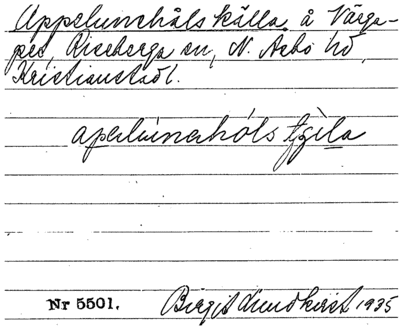 Appelunehåls källa å Värga-
pes, Riseberga sn, N. Asbo hd,
Kristianstad l.
Nr 5501. Birgit Lundkvist 1935